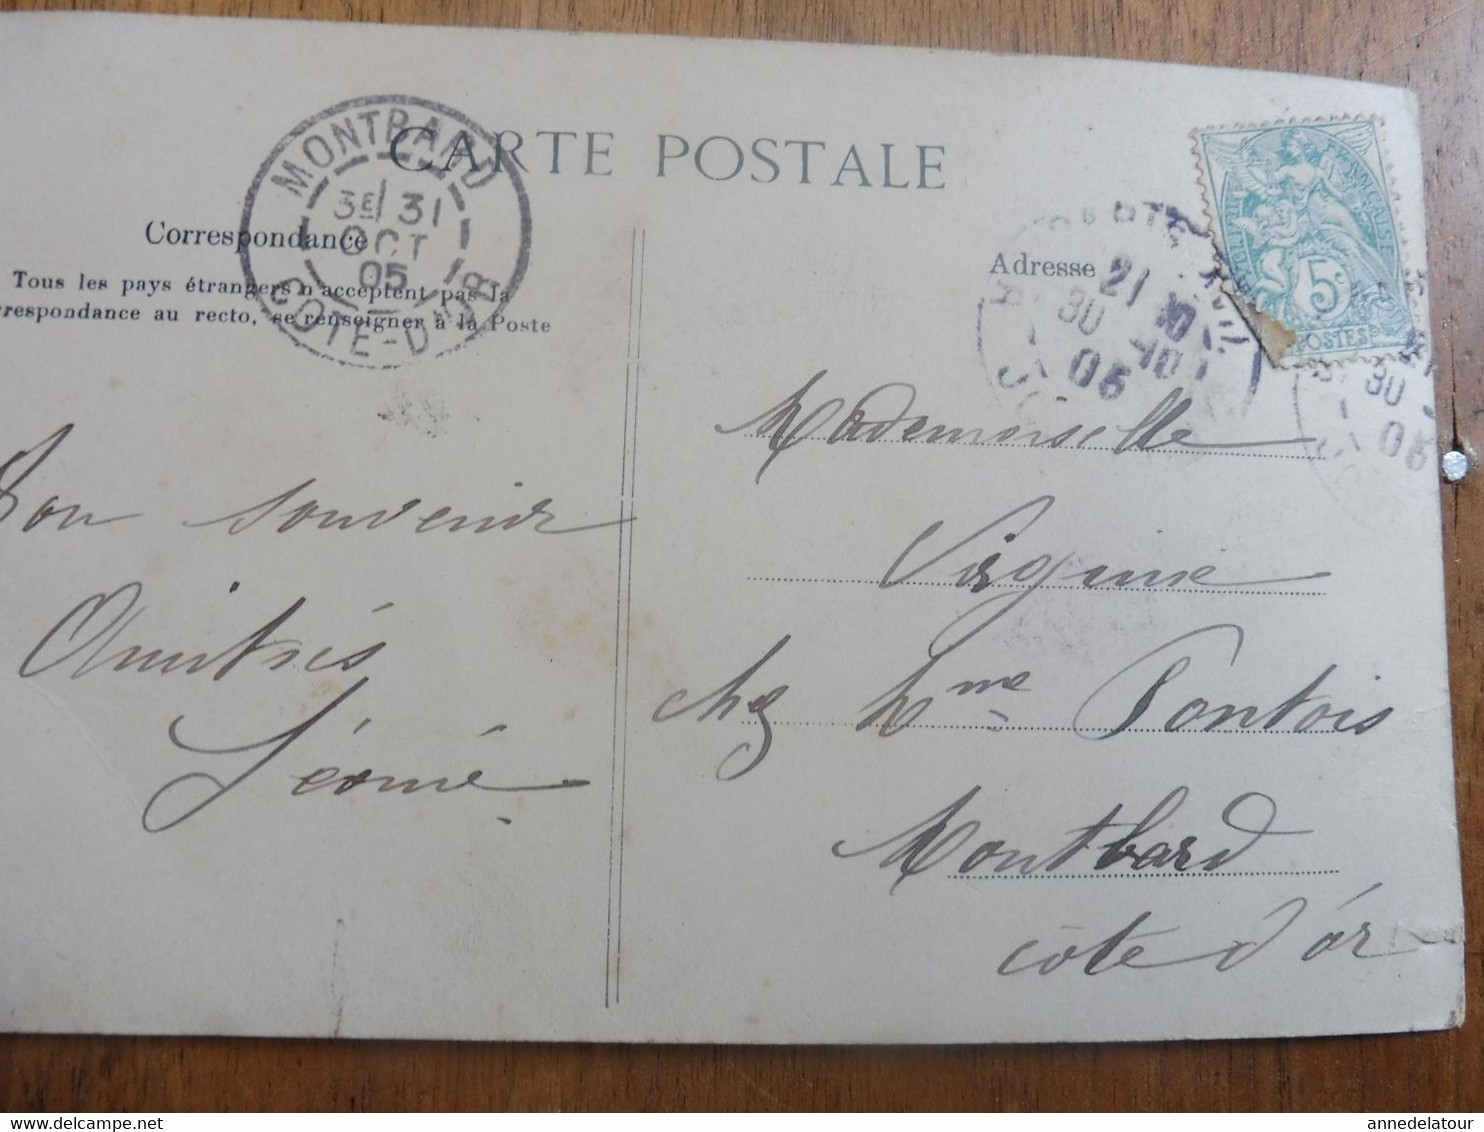 CARTE POSTALE
MONTBARD
3E 31
OCT
05
CÔTE-D'OR
Correspondance
Tous les pays étrangers n'acceptent pas la
respondance au recto, se renseigner à la Poste
Bon souvenir
Amitiés
Léonie
Adresse
21
30 - 10
05
5c
POSTES
30
05
Mademoiselle
Virginie
chez Mme Pontois
Montbard
côte d'or
annedelatour